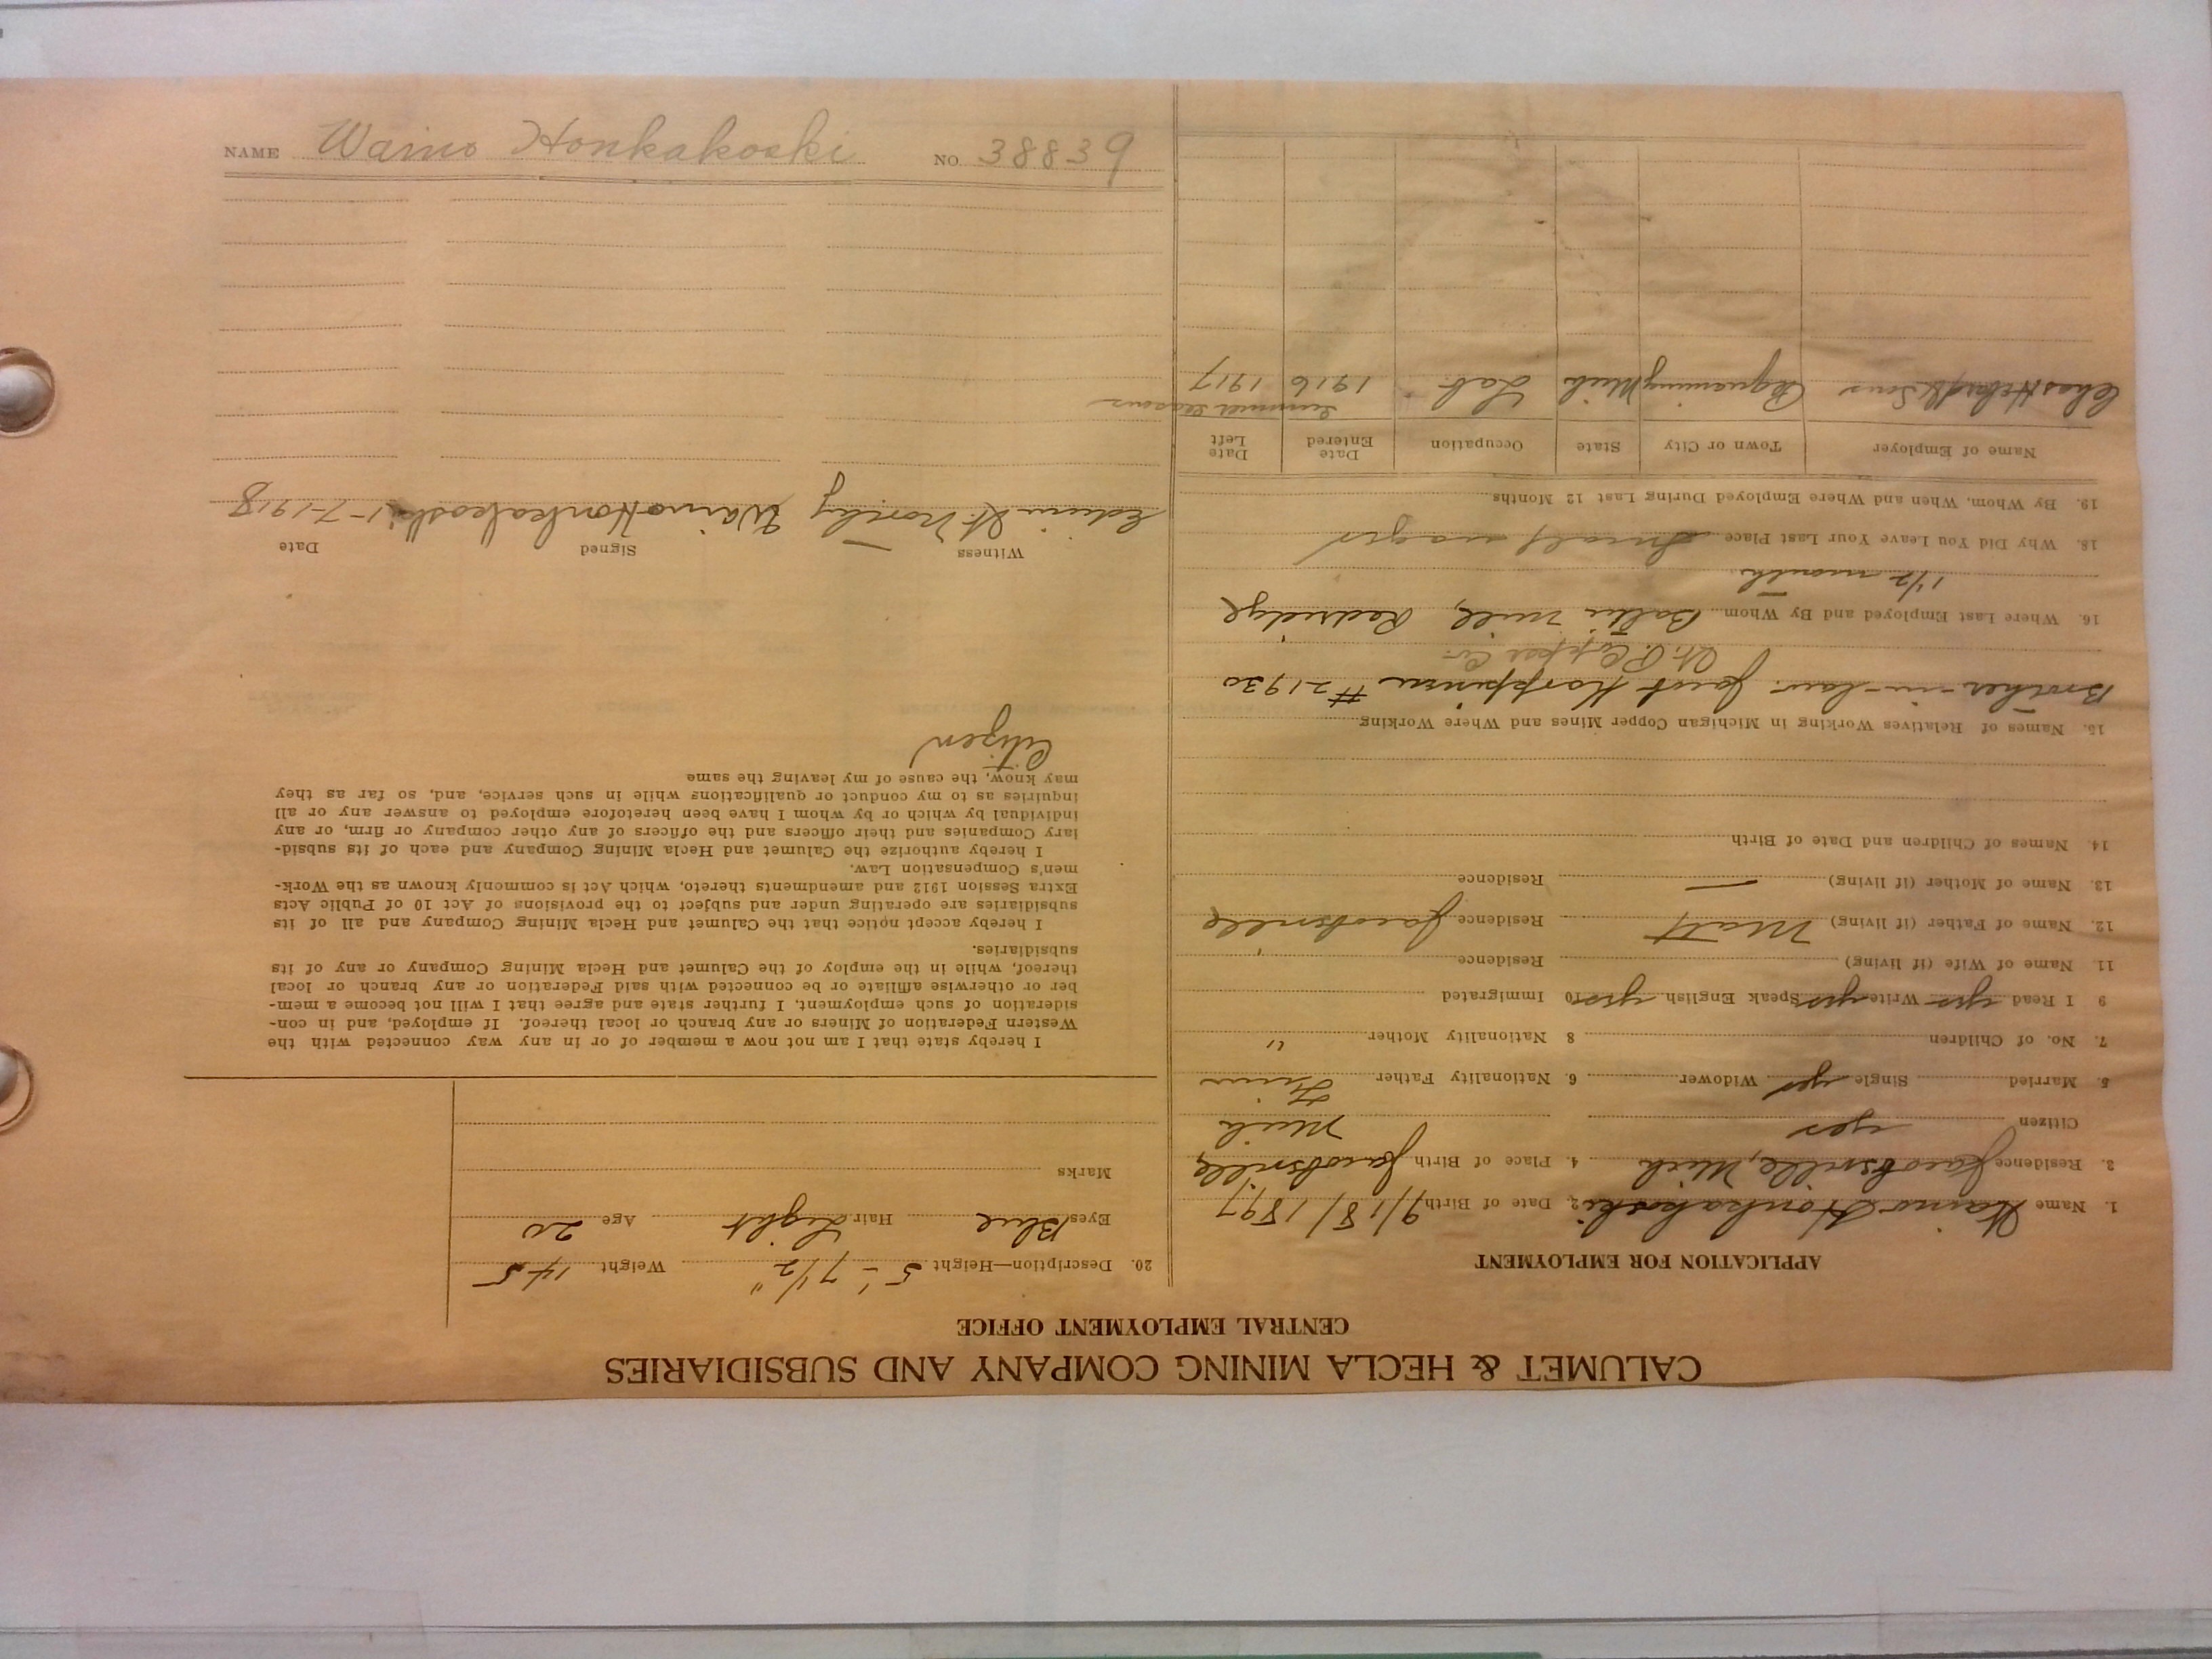 CALUMET & HECLA MINING COMPANY AND SUBSIDIARIES
CENTRAL EMPLOYMENT OFFICE
APPLICATION FOR EMPLOYMENT
1. Name Waino Honkakoski 2. Date of Birth 9/18/1897
3. Residence Jacobsville, Mich 4. Place of Birth Jacobsville,
Citizen yes Mich
5. Married Single yes Widower 6. Nationality Father Finn
7. No. of Children 8 Nationality Mother "
9 I Read yes Write yes Speak English yes 10 Immigrated
11. Name of Wife (if living) Residence
12. Name of Father (if living) Matt Residence Jacobsville
13. Name of Mother (if living) — Residence
14. Names of Children and Date of Birth
15. Names of Relatives Working in Michigan Copper Mines and Where Working
Brother-in-law. Jacob #21930
Copper Co.
16. Where Last Employed and By Whom Baltic Mill, Redridge
1 1/2 months.
18. Why Did You Leave Your Last Place Small wages
19. By Whom, When and Where Employed During Last 12 Months
Name of Employer Town or City State Occupation Date Entered Date Left
Summer seasons
Chas Hebard & Sons Pequaming Mich Lab. 1916 1917
20. Description—Height 5'-7 1/2" Weight 145
Eyes Blue Hair Light Age 20
Marks
I hereby state that I am not now a member of or in any way connected with the
Western Federation of Miners or any branch or local thereof. If employed, and in con-
sideration of such employment, I further state and agree that I will not become a mem-
ber or otherwise affiliate or be connected with said Federation or any branch or local
thereof, while in the employ of the Calumet and Hecla Mining Company or any of its
subsidiaries.
I hereby accept notice that the Calumet and Hecla Mining Company and all of its
subsidiaries are operating under and subject to the provisions of Act 10 of Public Acts
Extra Session 1912 and amendments thereto, which Act is commonly known as the Work-
men's Compensation Law.
I hereby authorize the Calumet and Hecla Mining Company and each of its subsid-
iary Companies and their officers and the officers of any other company or firm, or any
individual by which or by whom I have been heretofore employed to answer any or all
inquiries as to my conduct or qualifications while in such service, and, so far as they
may know, the cause of my leaving the same
Citizen
Witness Signed Date
Edwin Waino Honkakoski 1-7-1918
NAME Waino Honkakoski NO. 38839